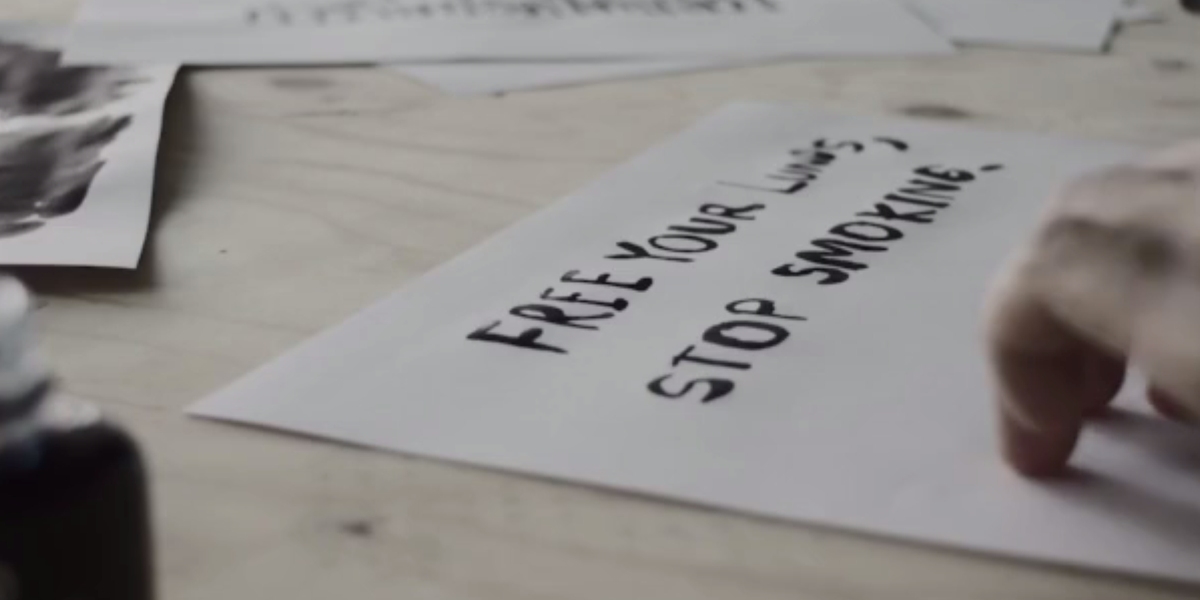 FREE YOUR LUNGS,
STOP SMOKING.